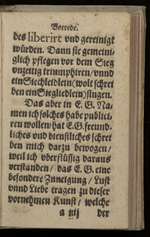 Vorrede.
des liberirt vnd gereinigt
würden. Dann sie gemeinig
lich pflegen vor dem Sieg
vnzeitig triumphiren / vnnd
ein Siechliedlein / wolt schrei
ben ein Siegliedlein / singen.
Das aber in E. G. Na-
men ich solches habe publici-
ren wollen / hat E. G. freund-
liches vnd dienstliches schrei
ben mich darzu bewogen /
weil ich vberflüssig daraus
verstanden / das E. G. eine
besondere Zuneigung / Lust
vnnd Liebe tragen zu dieser
vornehmen Kunst / welche
a iij der